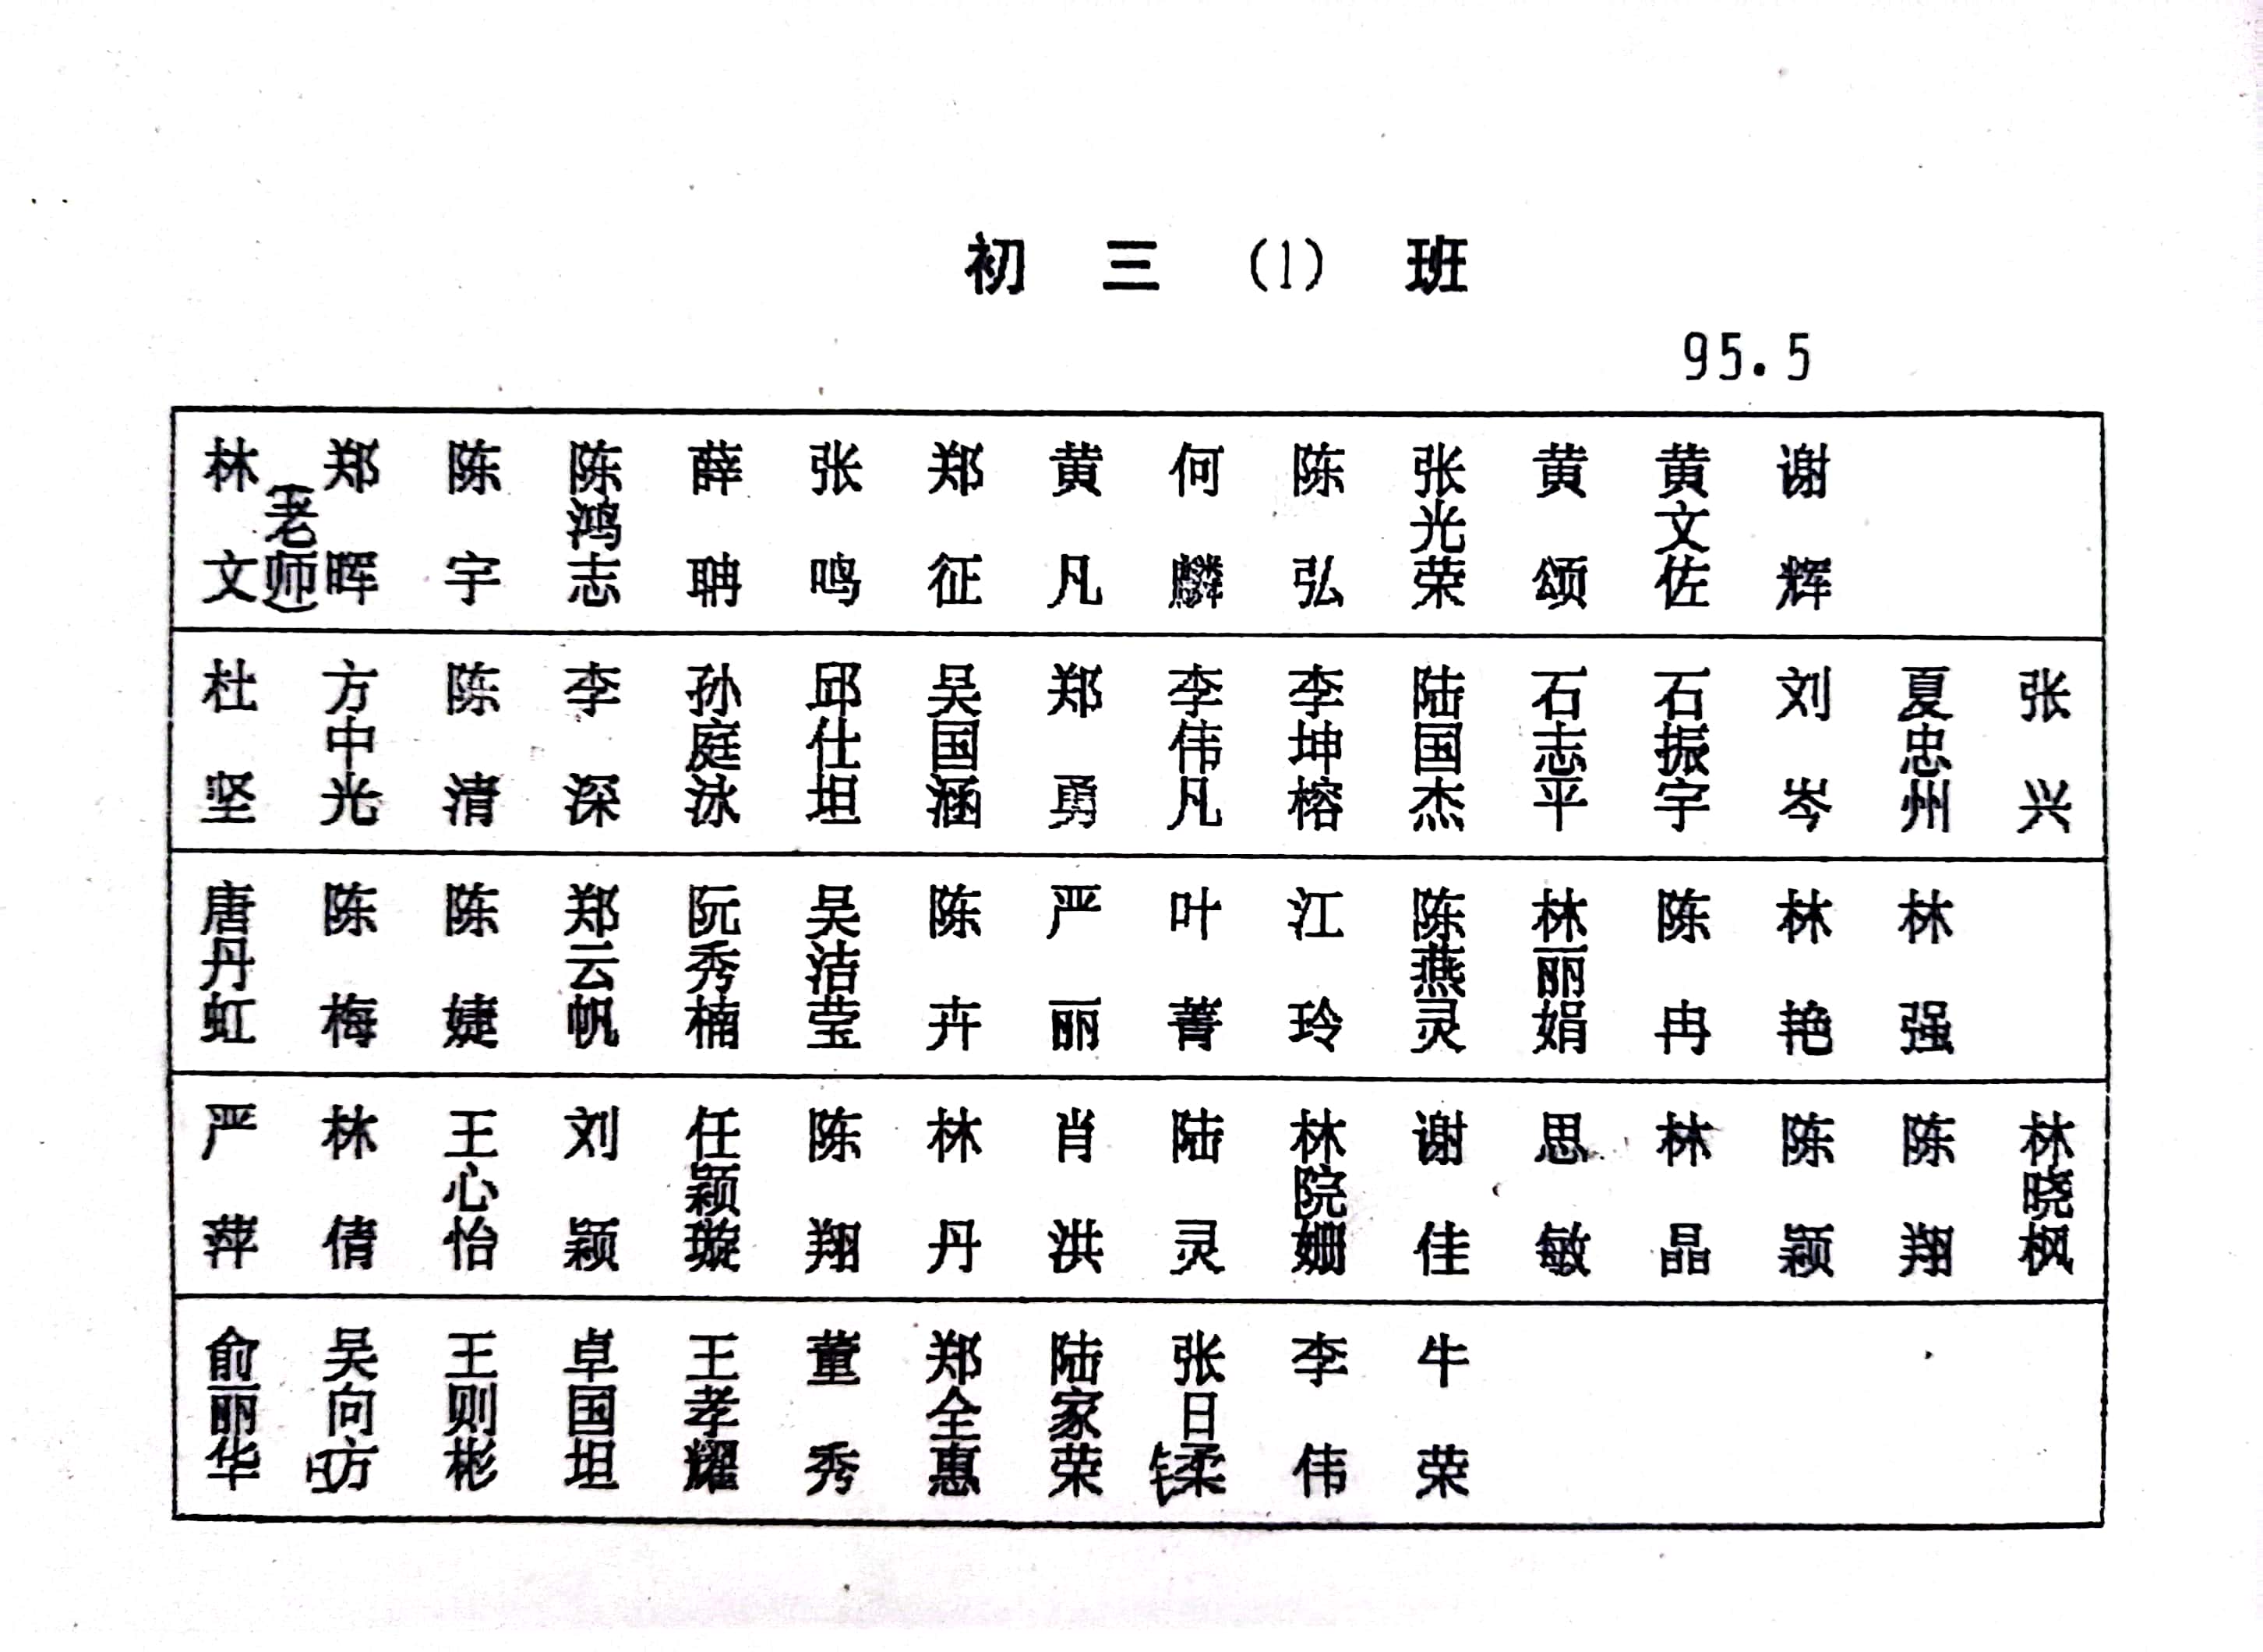 初三(1)班
95.5
林文(老师) 郑晖 陈宇 陈鸿志 薛聃 张鸣 郑征 黄凡 何麟 陈弘 张光荣 黄颂 黄文佐 谢辉
杜坚 方中光 陈清 李深 孙庭泳 邱仕坦 吴国涵 郑勇 李伟凡 李坤榕 陆国杰 石志平 石振宇 刘岑 夏忠州 张兴
唐丹虹 陈梅 陈婕 郑云帆 阮秀楠 吴洁莹 陈卉 严丽 叶菁 江玲 陈燕灵 林丽娟 陈冉 林艳 林强
严萍 林倩 王心怡 刘颖 任颖璇 陈翔 林丹 肖洪 陆灵 林院姗 谢佳 思敏 林晶 陈颖 陈翔 林晓枫
俞丽华 吴向昉 王则彬 卓国坦 王孝耀 董秀 郑全惠 陆家荣 张日鍒 李伟 牛荣